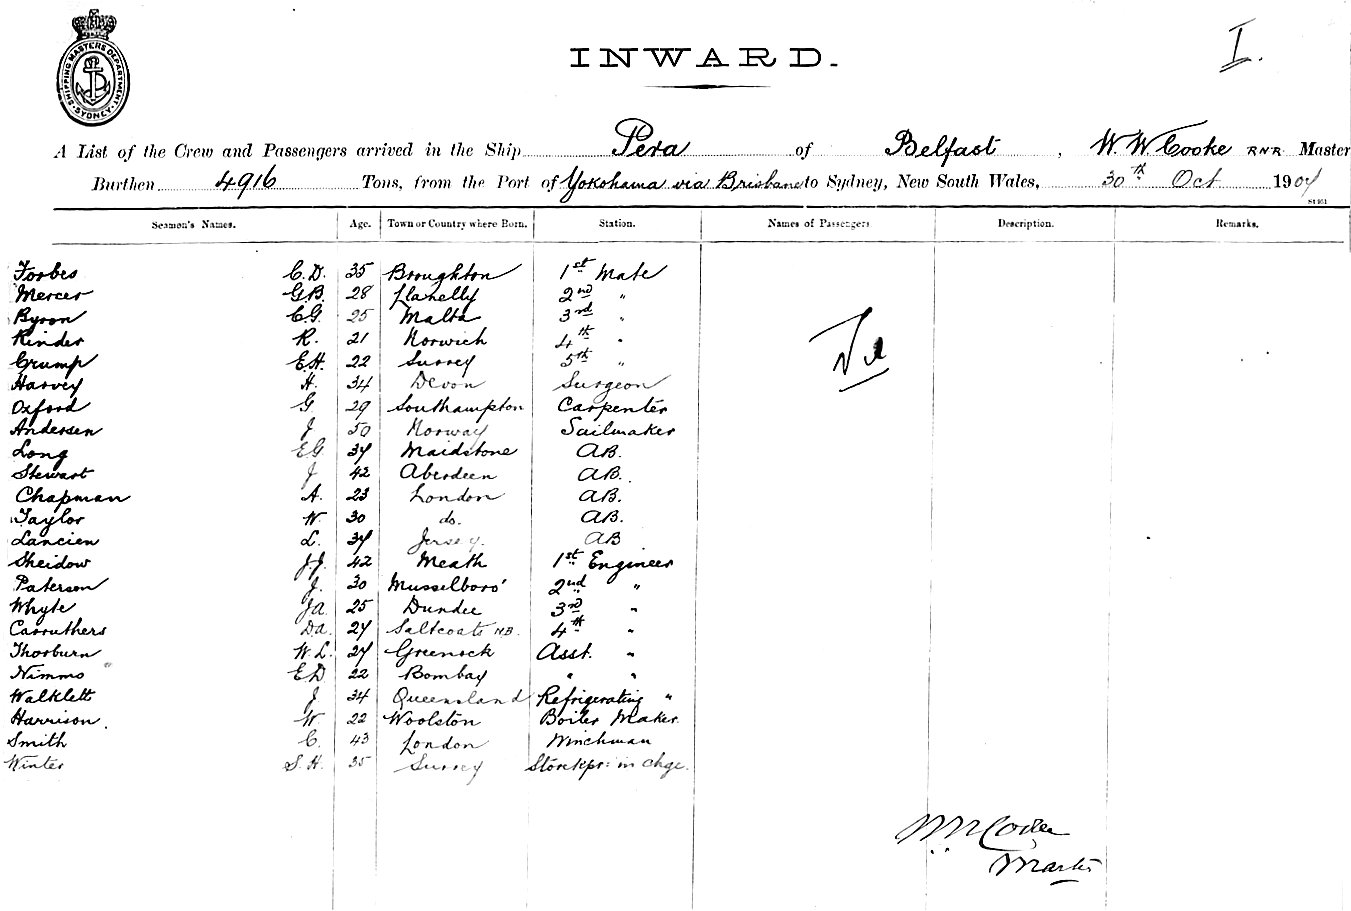 SHIPPING MASTERS DEPARTMENT SYDNEY
INWARD.
I.
A List of the Crew and Passengers arrived in the Ship Pera of Belfast, W. W. Cooke RNR Master
Burthen 4916 Tons, from the Port of Yokohama via Brisbane to Sydney, New South Wales, 30th Oct 1904
Seamen's Names. Age. Town or Country where Born. Station. Names of Passengers Description. Remarks.
Forbes C. D. 35 Broughton 1st Mate
Mercer G.B. 28 Llanelly 2nd "
Byron C.G. 25 Malta 3rd "
Kinder R. 21 Norwich 4th "
Crump E.H. 22 Surrey 5th "
Harvey H. 34 Devon Surgeon
Oxford G. 29 Southampton Carpenter
Andersen J 50 Norway Sailmaker
Long EG 34 Maidstone AB.
Stewart J 42 Aberdeen AB.
Chapman A. 23 London AB.
Taylor W. 30 do. AB.
Lancien L. 34 Jersey. AB
Sheidow J.J. 42 Meath 1st Engineer
Paterson J. 30 Musselboro' 2nd "
Whyte Ja 25 Dundee 3rd "
Carruthers Da. 24 Saltcoats NB. 4th "
Thorburn W. L. 24 Greenock Asst. "
Nimmo E D 22 Bombay " "
Walklett J 34 Queensland Refrigerating "
Harrison. W. 22 Woolston Boiler Maker.
Smith C. 43 London Winchman
Winter S. H. 35 Surrey Storekpr: in Chge.
Master